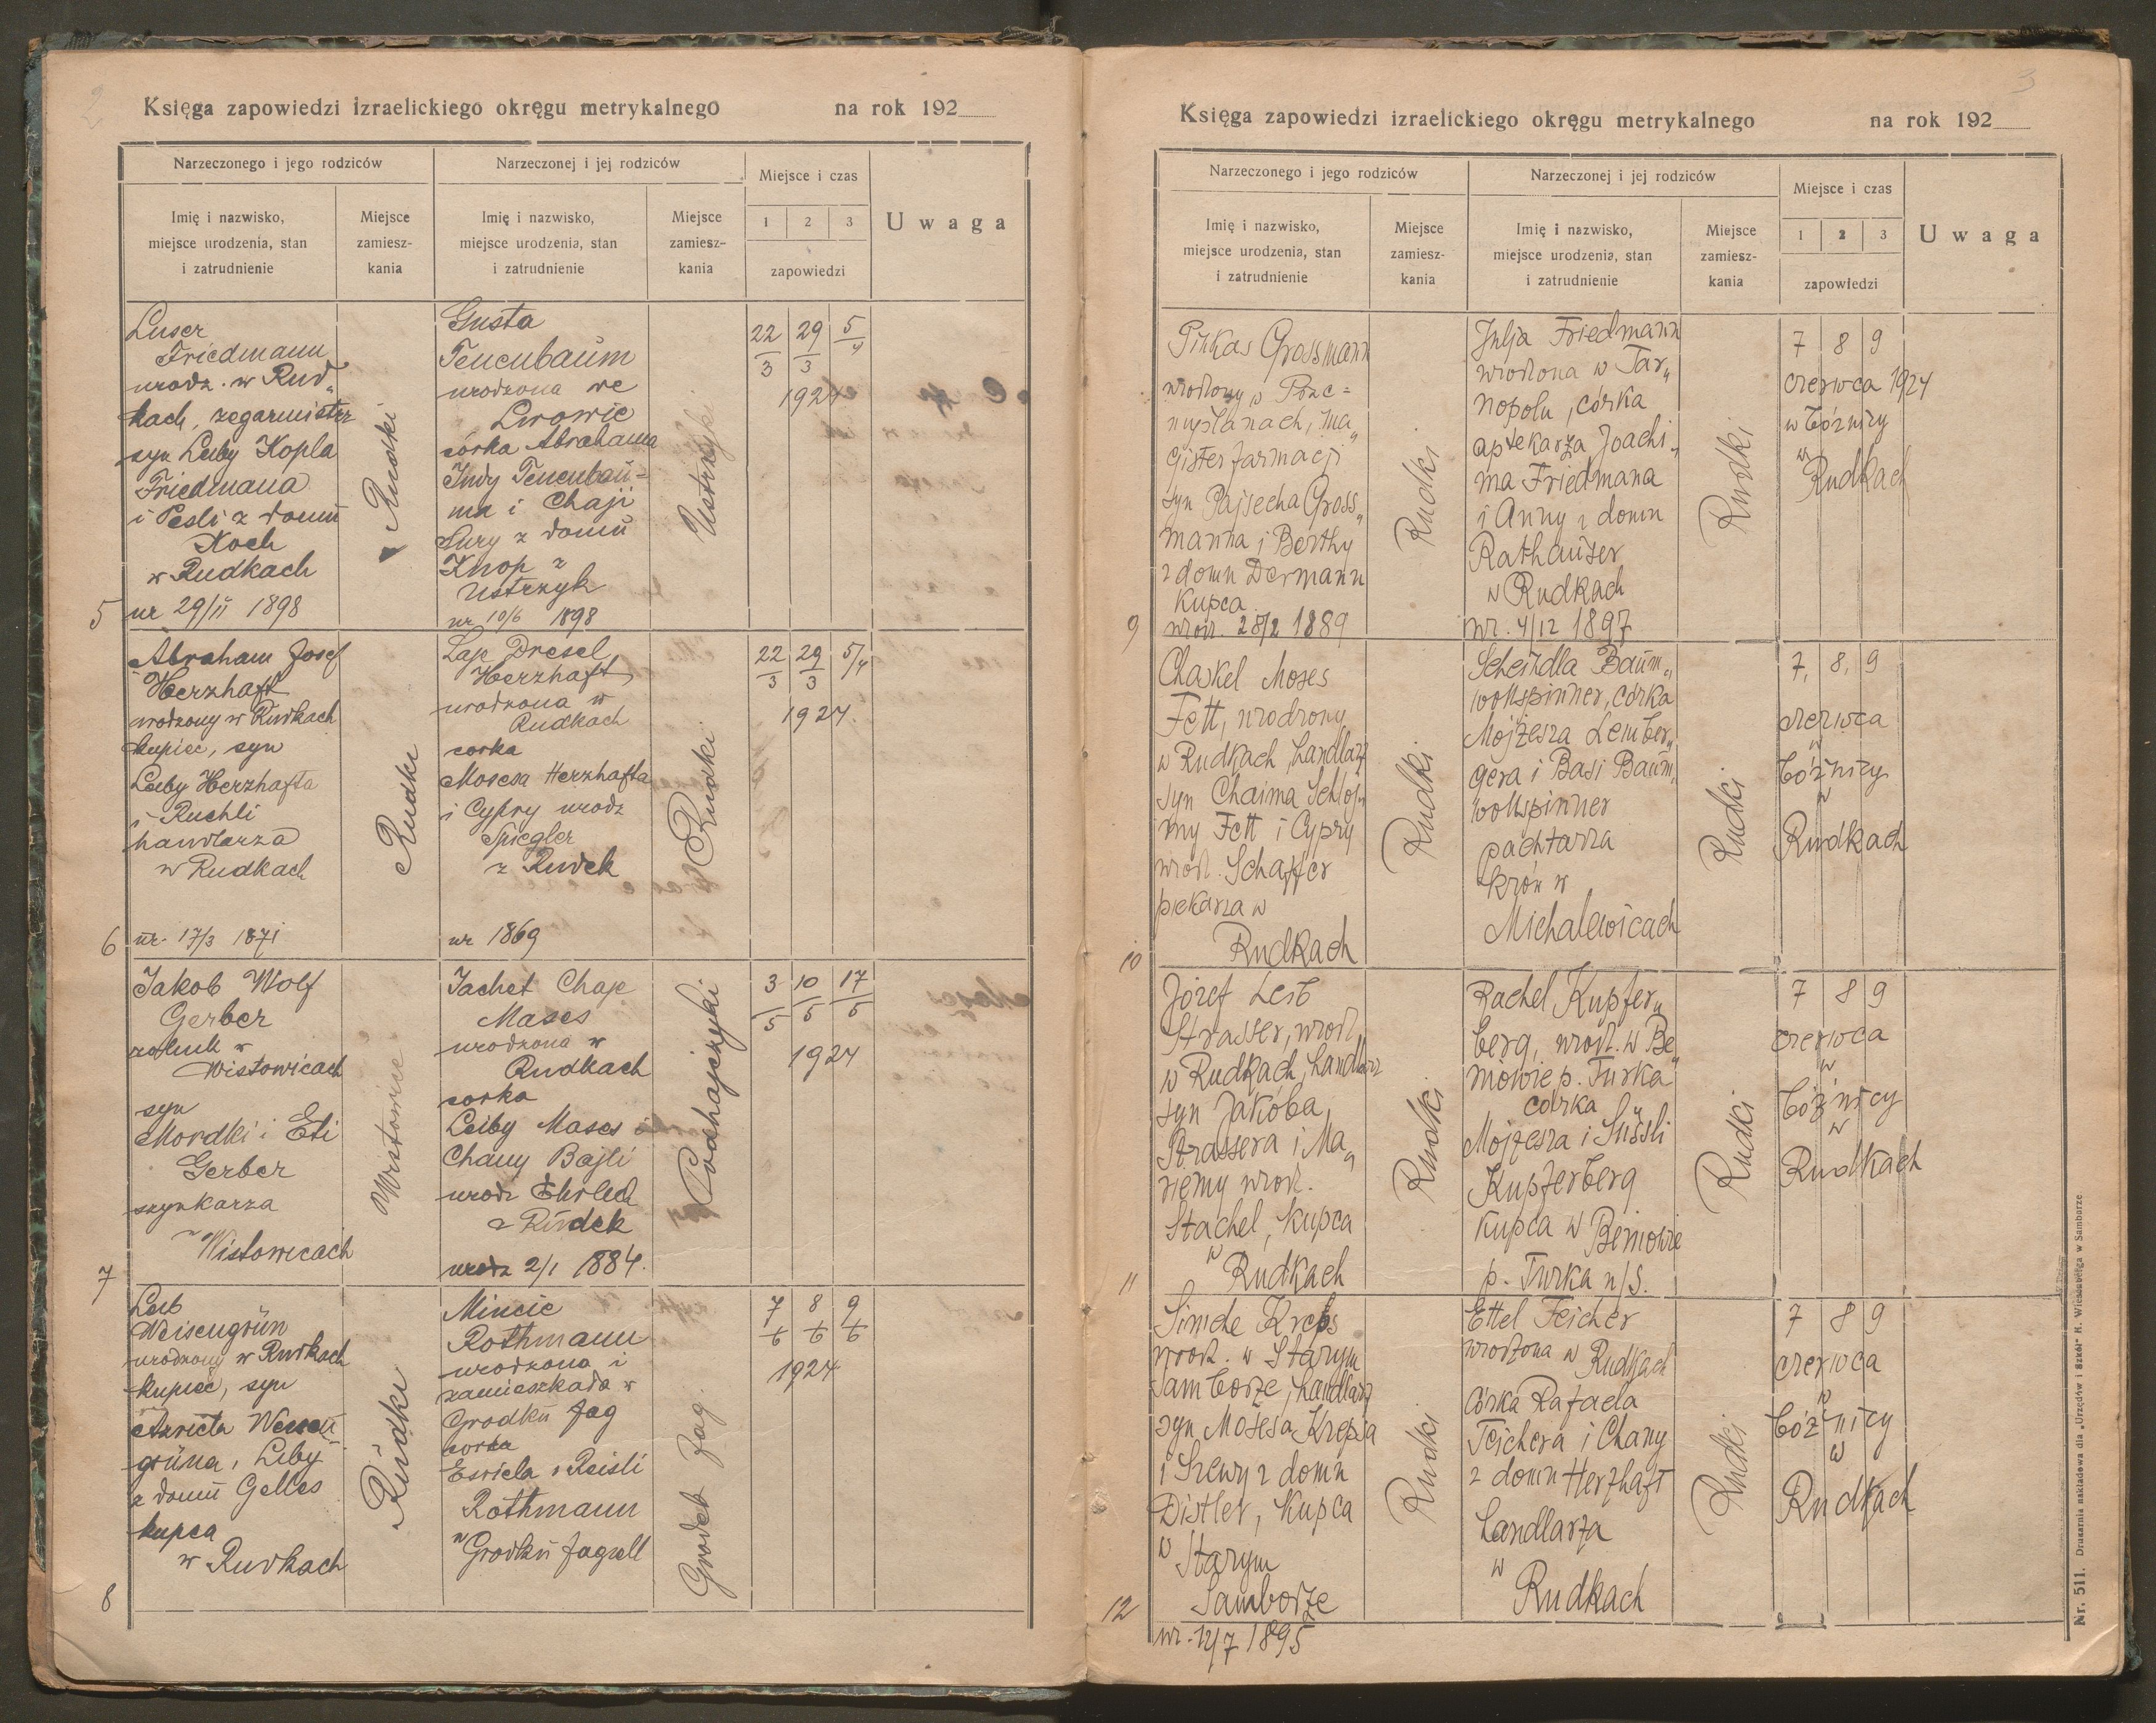 2
Księga zapowiedzi izraelickiego okręgu metrykalnego na rok 192
Narzeczonego i jego rodziców
Narzeczonej i jej rodziców
Miejsce i czas
Uwaga
Imię i nazwisko,
miejsce urodzenia, stan
i zatrudnienie
Miejsce
zamiesz-
kania
Imię i nazwisko,
miejsce urodzenia, stan
i zatrudnienie
Miejsce
zamiesz-
kania
1 2 3
zapowiedzi
5
Luser
Friedmann
urodz. w Rud„
kach, zegarmistrz
syn Leiby Kopla
Friedmana
i Pesli z domu
Koch
w Rudkach
ur 29/II 1898
Rudki
Gusta
Tenenbaum
urodzona we
Lwowie
córka Abrahama
Judy Tenenbau-
ma i Chaji
Sury z domu
Knop z
Ustrzyk
ur 10/6 1898
Ustrzyki
22/3 29/3 5/4
1924
6
Abraham Josef
Herzhaft
urodzony w Rudkach
kupiec, syn
Leiby Herzhafta
i Ruchli
handlarza
w Rudkach
ur. 17/3 1871
Rudki
Laje Dresel
Herzhaft
urodzona w
Rudkach
corka
Mosesa Herzhafta
i Cypry urodz
Spiegler
z Rudek
ur 1869
Rudki
22/3 29/3 5/4
1924
7
Jakob Wolf
Gerber
rolnik w
Wistowicach
syn
Mordki i Eti
Gerber
szynkarza
w Wistowicach
Wistowice
Jachet Chaje
Mases
urodzona w
Rudkach
corka
Leiby Mases i
Chany Bajli
urodz Ehrlich
z Rudek
urodz 2/1 1884.
Podhajczyki
3/5 10/5 17/5
1924
8
Leib
Weisengrün
urodzony w Rudkach
kupiec, syn
Azriela Weisen
grüna i Leiby
z domu Gelles
kupca
w Rudkach
Rudki
Mincie
Rothmann
urodzona i
zamieszkała w
Grodku Jag
corka
Esriela i Reisli
Rothmann
w Grodku Jagiell
Grodek Jag.
7/6 8/6 9/6
1924
3
Księga zapowiedzi izraelickiego okręgu metrykalnego na rok 192
Narzeczonego i jego rodziców
Narzeczonej i jej rodziców
Miejsce i czas
Uwaga
Imię i nazwisko,
miejsce urodzenia, stan
i zatrudnienie
Miejsce
zamiesz-
kania
Imię i nazwisko,
miejsce urodzenia, stan
i zatrudnienie
Miejsce
zamiesz-
kania
1 2 3
zapowiedzi
9
Pinkas Grossmann
urodzony w Prze=
myślanach, ma„
gister farmacji
syn Pajsecha Gross„
manna i Berthy
z domu Dermann
kupca
urodz. 28/2 1889
Rudki
Julja Friedmann
urodzona w Tar„
nopolu, córka
aptekarza Joachi„
ma Friedmana
i Anny z domu
Rathauser
w Rudkach
ur. 4/12 1897
Rudki
7 8 9
czerwca 1924
w bóżnicy
w
Rudkach
10
Chaskel Moses
Fett, urodzony
w Rudkach, handlarz
syn Chaima Schloj„
my Fett i Cypry
urodz. Schaffer
piekarza w
Rudkach
Rudki
Scheindla Baum„
wollspinner, córka
Mojżesza Lember„
gera i Basi Baum„
wollspinner
pachtarza
krów w
Michalewicach
Rudki
7, 8, 9
czerwca
w
bóżnicy
w
Rudkach
11
Józef Leib
Strasser, urodz.
w Rudkach, handlarz
syn Jakóba
Strassera i Ma„
riemy urodz.
Stachel, kupca
w
Rudkach
Rudki
Rachel Kupfer„
berg, urodz. w Be„
niowie p. Turka
córka
Mojżesza i Süssli
Kupferberg
kupca w Beniowie
p. Turka n/S.
Rudki
7 8 9
czerwca
w
bóżnicy
w
Rudkach
12
Simche Kreps
urodz. w Starym
Samborze, handlarz
syn Mosesa Krepsa
i Szewy z domu
Distler, kupca
w
Starym
Samborze
ur. 12/7 1895
Rudki
Ettel Teicher
urodzona w Rudkach
córka Rafaela
Teichera i Chany
z domu Herzhaft
handlarza
w
Rudkach
Rudki
7 8 9
czerwca
w
bóżnicy
w
Rudkach
Nr. 511. Drukarnia nakładowa dla „Urzędów i Szkół" H. Wiesenberga w Samborze